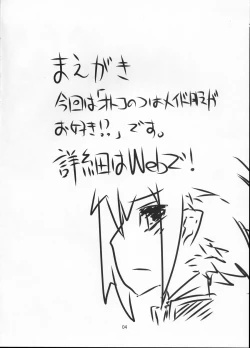 まえがき
今回は「オトコのコはメイド服が
お好き!?」です。
詳細はWebで!
04